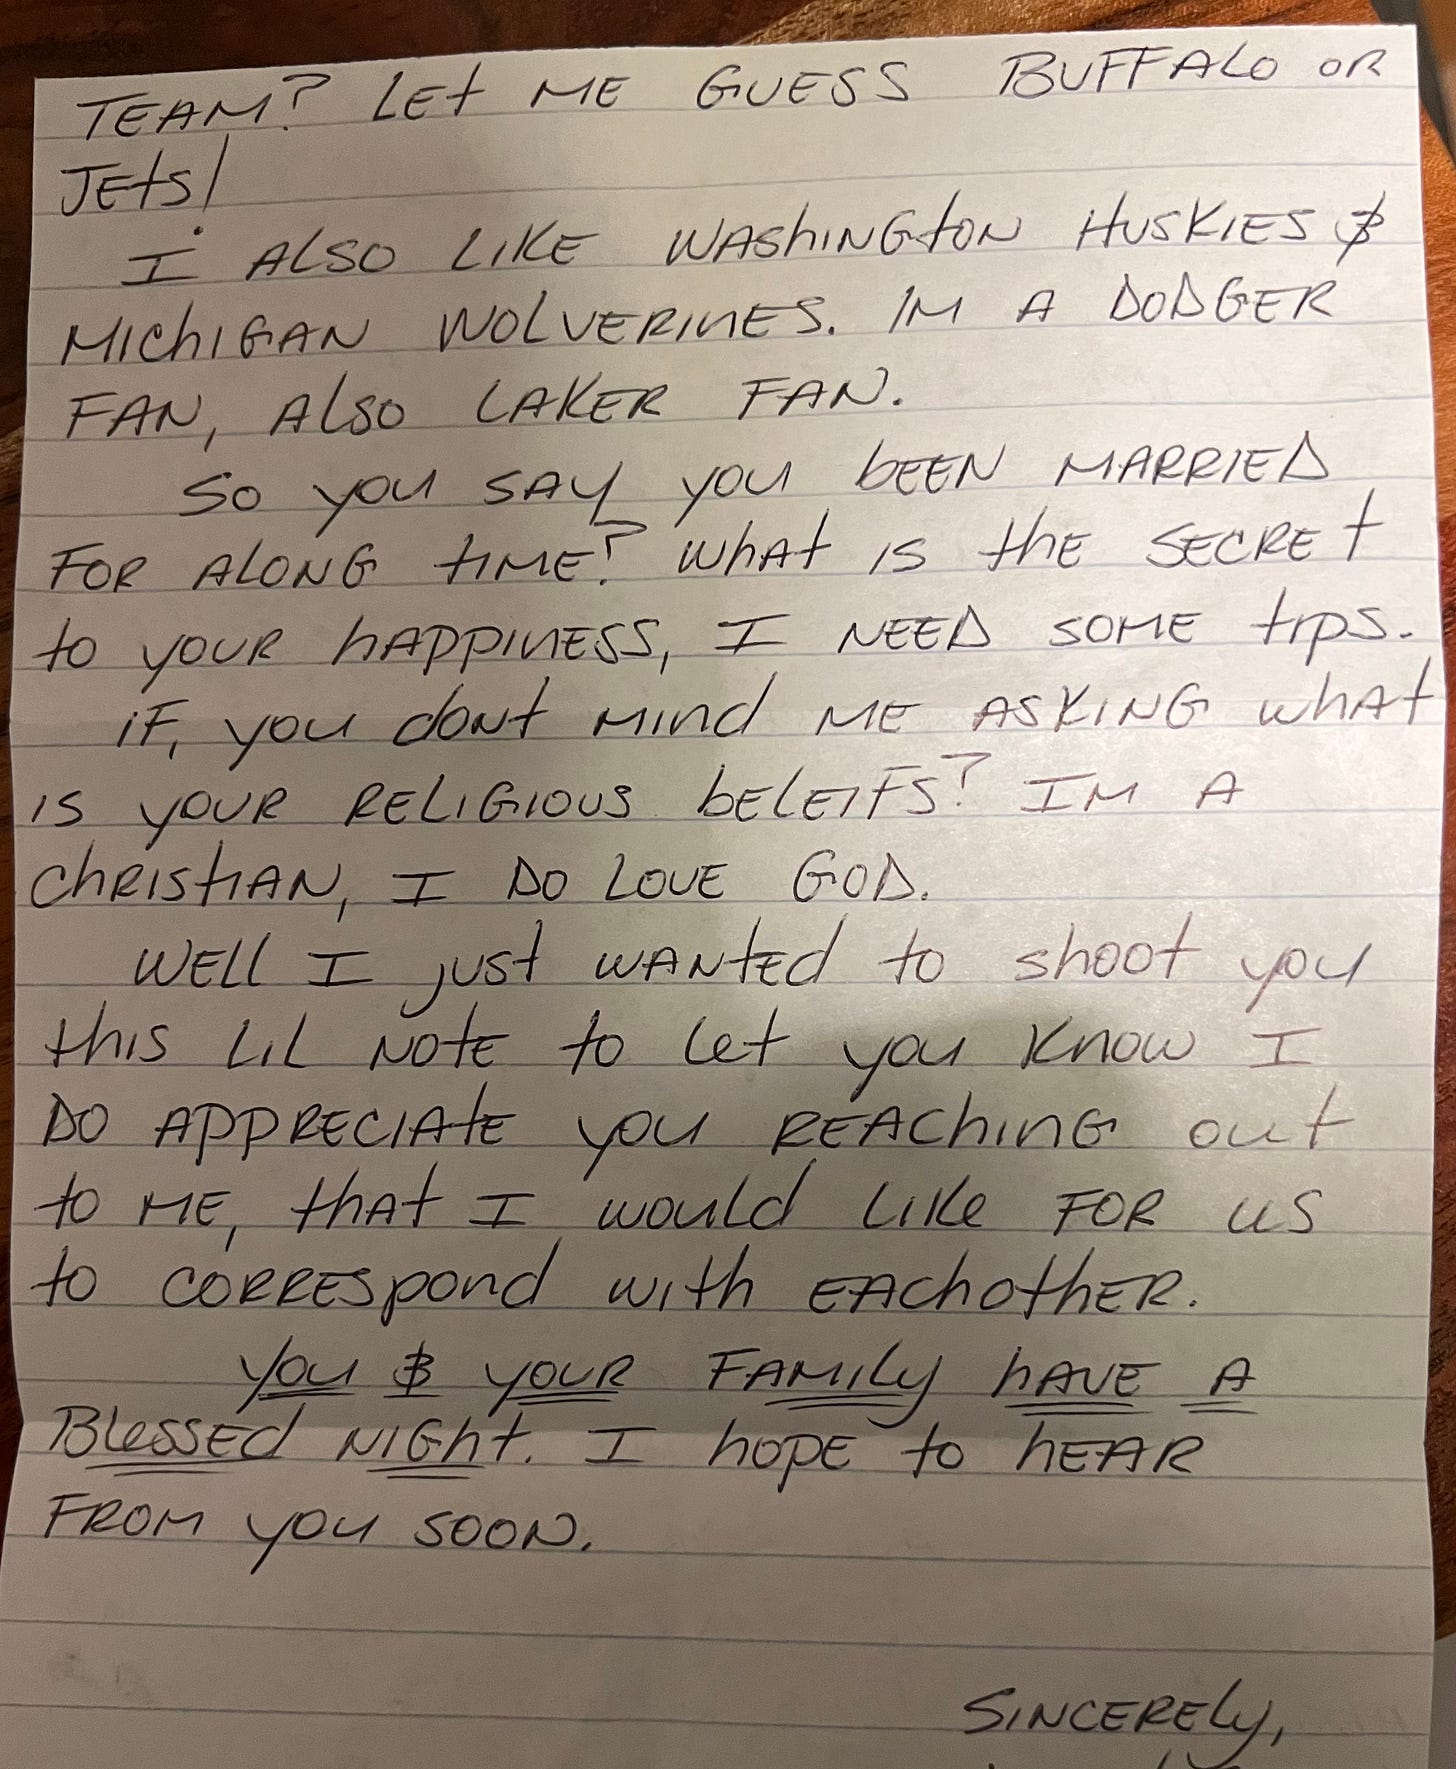 TEAM? LEt ME GUESS BUFFALO OR
JEtS!
I ALSO LIKE WAShINGtON HUSKIES &
MIChIGAN WOLVERINES. IM A DODGER
FAN, ALSO LAKER FAN.
SO YOU SAY YOU bEEN MARRIED
FOR ALONG tIME? WhAt IS thE SECREt
to YOUR hAPPINESS, I NEED SOME tIPS.
iF, YOU dont MINd ME ASKING whAt
IS YOUR RELIGIOUS bELEIFS? IM A
ChRIStIAN, I DO LOVE GOD.
WELL I just WANtEd to shoot you
this LIL NOtE to Let you KNOW I
DO APPRECIAtE you REAChING out
to ME, thAt I would LIKe FOR US
to CORRESpond with EAChothER.
YOU & YOUR FAMILY hAVE A
BLessEd NIGht. I hOPE to hEAR
FROM YOU SOON.
SINCERELY,